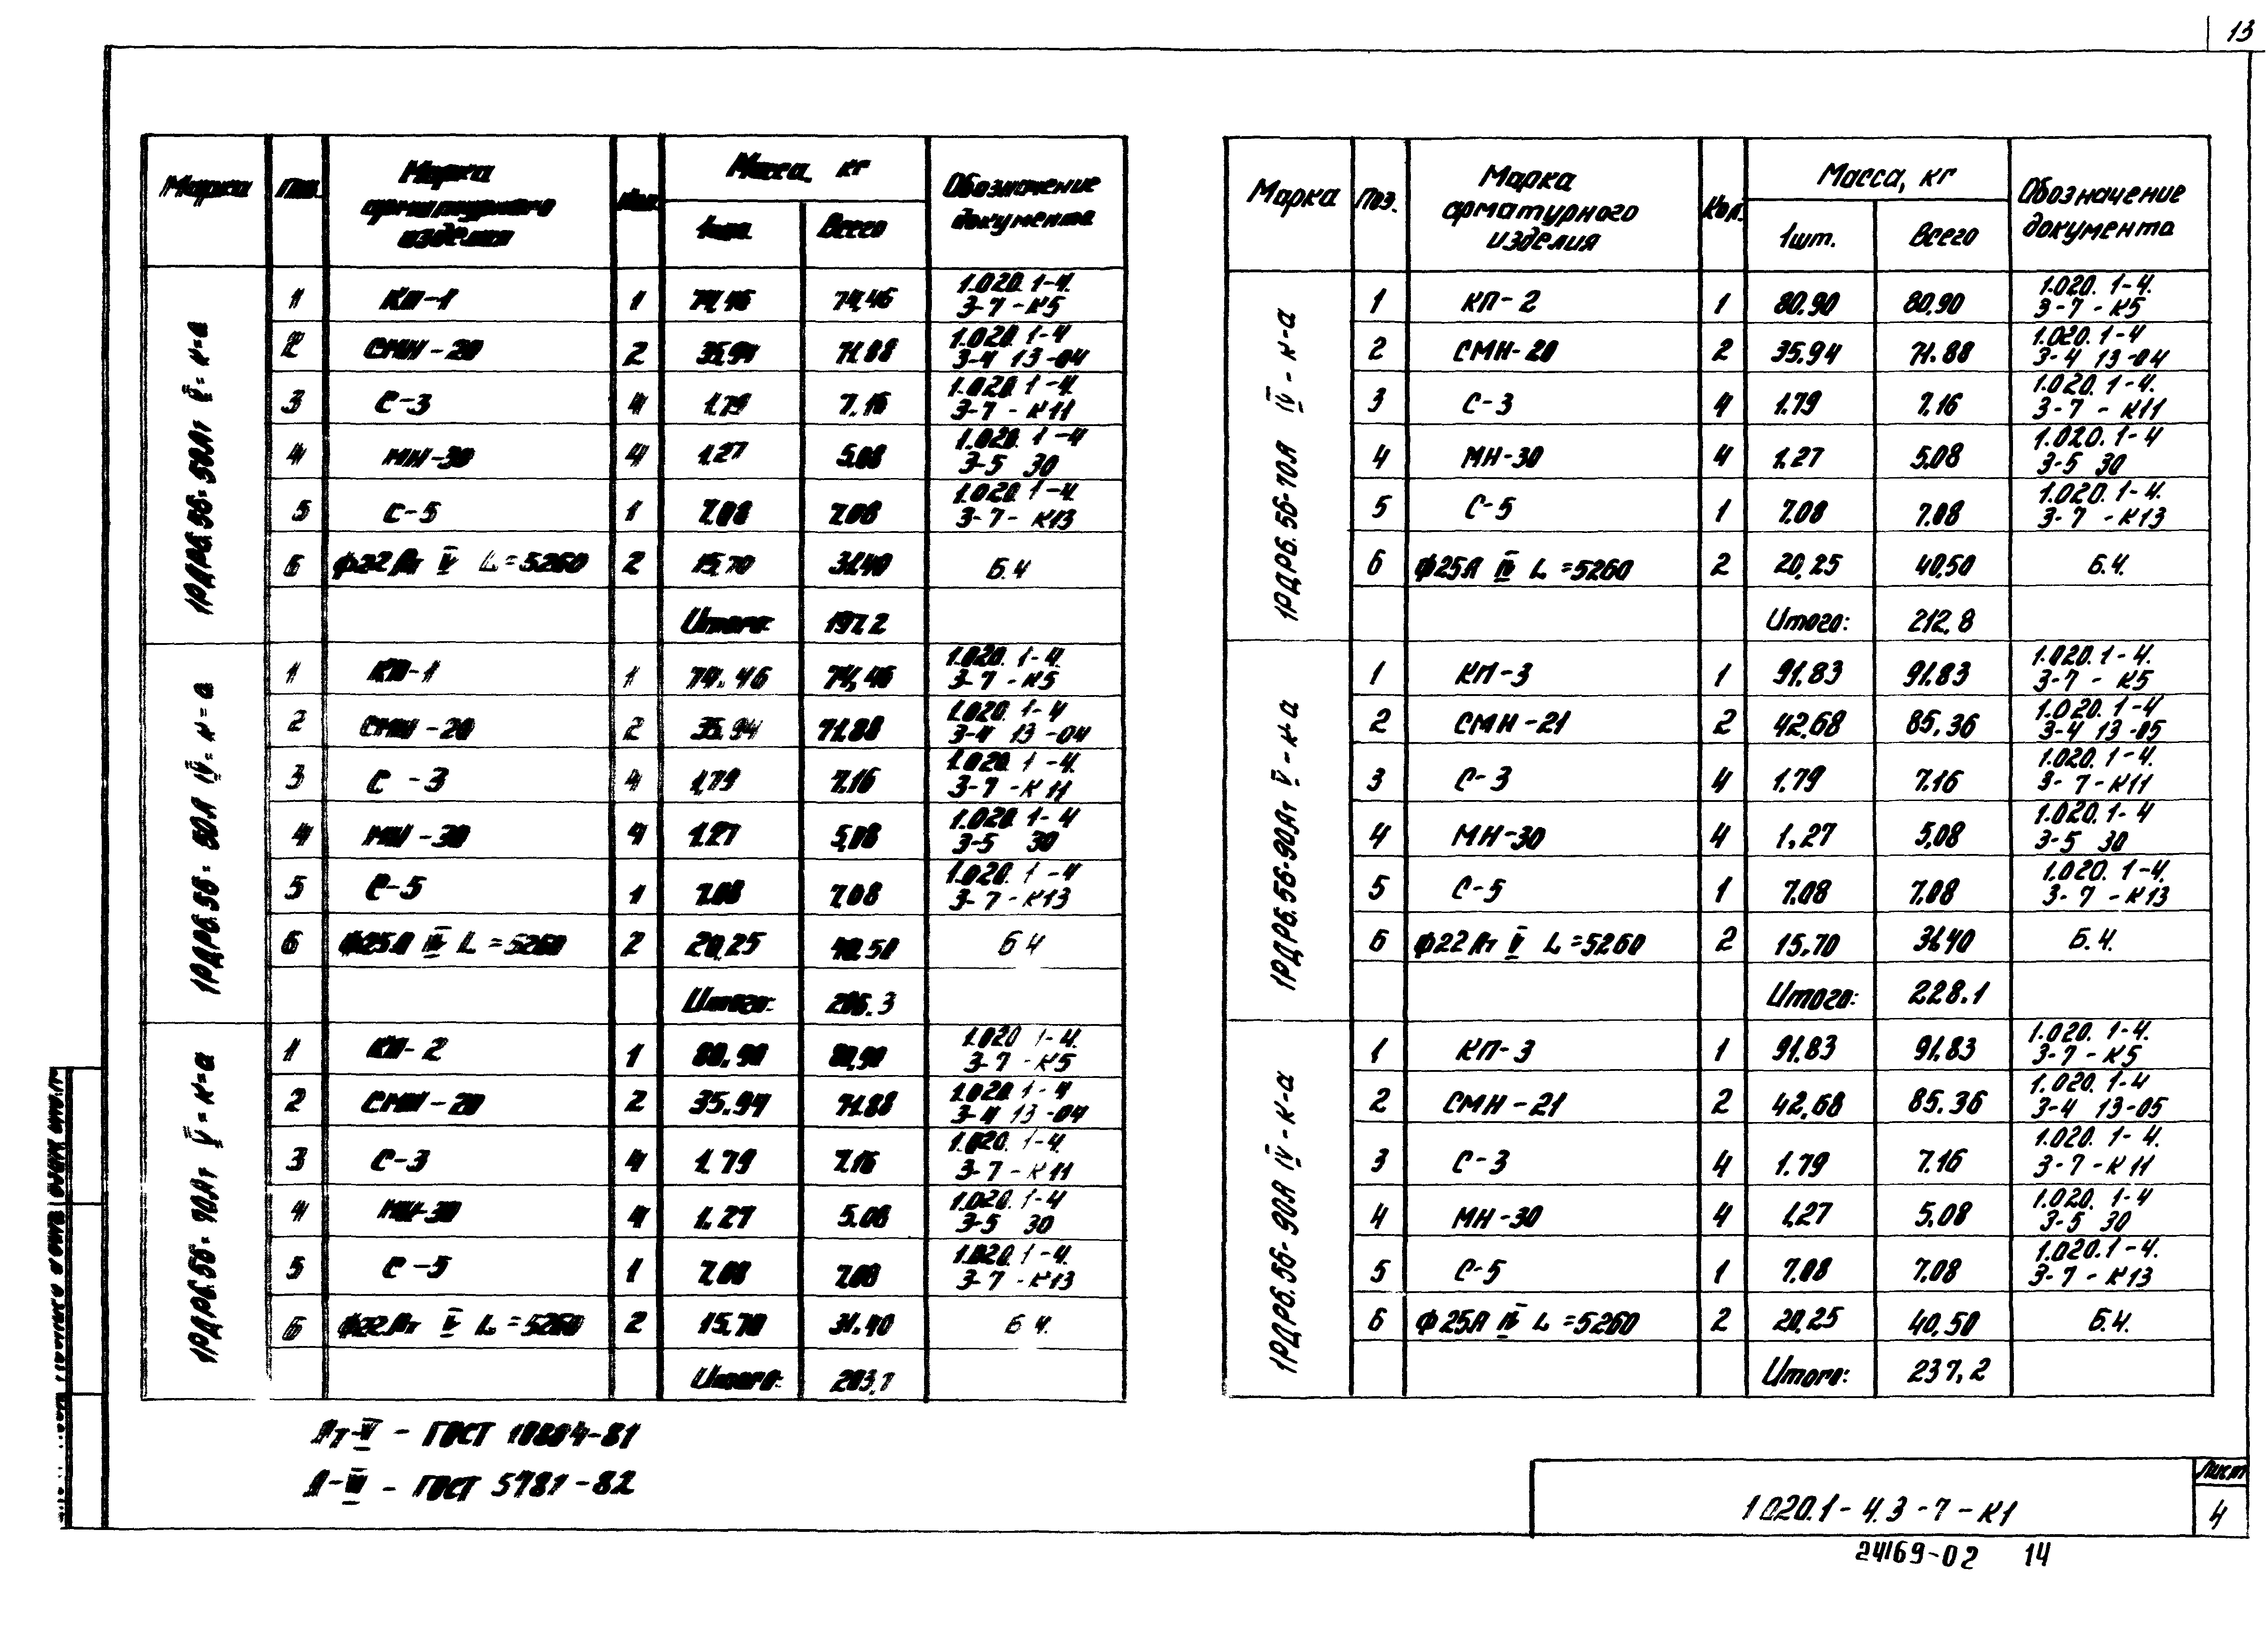 13
Марка Поз. Марка арматурного изделия Кол. Масса, кг Обозначение документа
1шт. Всего
1РДР6.56-50Ат V-к-а
1 КП-1 1 74,46 74,46 1.020.1-4.3-7-К5
2 СМН-20 2 35.94 71.88 1.020.1-4 3-4 13-04
3 С-3 4 1.79 7.16 1.020.1-4.3-7-К11
4 МН-30 4 1.27 5.08 1.020.1-4 3-5 30
5 С-5 1 7.08 7.08 1.020.1-4.3-7-К13
6 ф22Ат V L=5260 2 15,70 31.40 Б.Ч
Итого: 197.2
1РДР6.56-50А IV-к-а
1 КП-1 1 74.46 74,46 1.020.1-4.3-7-К5
2 СМН-20 2 35.94 71.88 1.020.1-4 3-4 13-04
3 С-3 4 1,79 7.16 1.020.1-4.3-7-К11
4 МН-30 4 1.27 5,08 1.020.1-4 3-5 30
5 С-5 1 7.08 7,08 1.020.1-4 3-7-К13
6 ф25А IV L=5260 2 20,25 40.50 Б Ч
Итого: 206.3
1РДР6.56-70Ат V-к-а
1 КП-2 1 80.90 80,90 1.020 1-4.3-7-К5
2 СМН-20 2 35.94 71.88 1.020.1-4 3-4 13-04
3 С-3 4 1.79 7.16 1.020.1-4.3-7-К11
4 МН-30 4 1.27 5.08 1.020.1-4 3-5 30
5 С-5 1 7,08 7,08 1.020.1-4.3-7-К13
6 ф22Ат V L=5260 2 15.70 31.40 Б Ч.
Итого: 203,7
Ат-V - ГОСТ 10884-81
ГОСТ 5781-82
Марка Поз. Марка арматурного изделия Кол. Масса, кг Обозначение документа
1шт. Всего
1РДР6.56-70А IV-к-а
1 КП-2 1 80.90 80,90 1.020.1-4.3-7-К5
2 СМН-20 2 35.94 71.88 1.020.1-4 3-4 13-04
3 С-3 4 1.79 7.16 1.020.1-4.3-7-К11
4 МН-30 4 1.27 5.08 1.020.1-4 3-5 30
5 С-5 1 7.08 7.08 1.020.1-4.3-7-К13
6 ф25А IV L=5260 2 20,25 40,50 Б.Ч.
Итого: 212,8
1РДР6.56-90Ат V-к-а
1 КП-3 1 91.83 91.83 1.020.1-4.3-7-К5
2 СМН-21 2 42.68 85.36 1.020.1-4 3-4 13-05
3 С-3 4 1.79 7.16 1.020.1-4.3-7-К11
4 МН-30 4 1,27 5,08 1.020.1-4 3-5 30
5 С-5 1 7.08 7.08 1.020.1-4.3-7-К13
6 ф22Ат V L=5260 2 15.70 31.40 Б.Ч.
Итого: 228.1
1РДР6.56-90А IV-к-а
1 КП-3 1 91.83 91.83 1.020.1-4.3-7-К5
2 СМН-21 2 42,68 85.36 1.020.1-4 3-4 13-05
3 С-3 4 1.79 7.16 1.020.1-4.3-7-К11
4 МН-30 4 1,27 5.08 1.020.1-4 3-5 30
5 С-5 1 7.08 7.08 1.020.1-4.3-7-К13
6 ф25А IV L=5260 2 20,25 40,50 Б.Ч.
Итого: 237,2
1.020.1-4.3-7-К1
Лист
4
24169-02 14